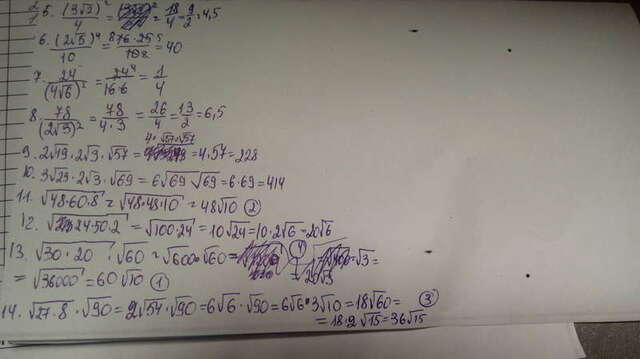 5. (3√2)² / 4 = 18/4 = 9/2 = 4,5
6. (2√5)⁴ / 10 = 40
7. 24 / (4√6)² = 24 / 16·6 = 1/4
8. 78 / (2√3)² = 78 / 4·3 = 26/4 = 13/2 = 6,5
9. 2√19·2√3·√57 = 4·57 = 228
4·√57·√57
10. 3√23·2√3·√69 = 6√69 √69 = 6·69 = 414
11. √48·60·8 = √48·48·10 = 48√10 ②
12. √24·50·2 = √100·24 = 10√24 = 10·2√6 = 20√6
13. √30·20 · √60 = √600·√60 =
= √36000 = 60√10 ①
14. √27·8 · √90 = 2√54·√90 = 6√6·√90 = 6√6·3√10 = 18√60 = ③
= 18·2√15 = 36√15